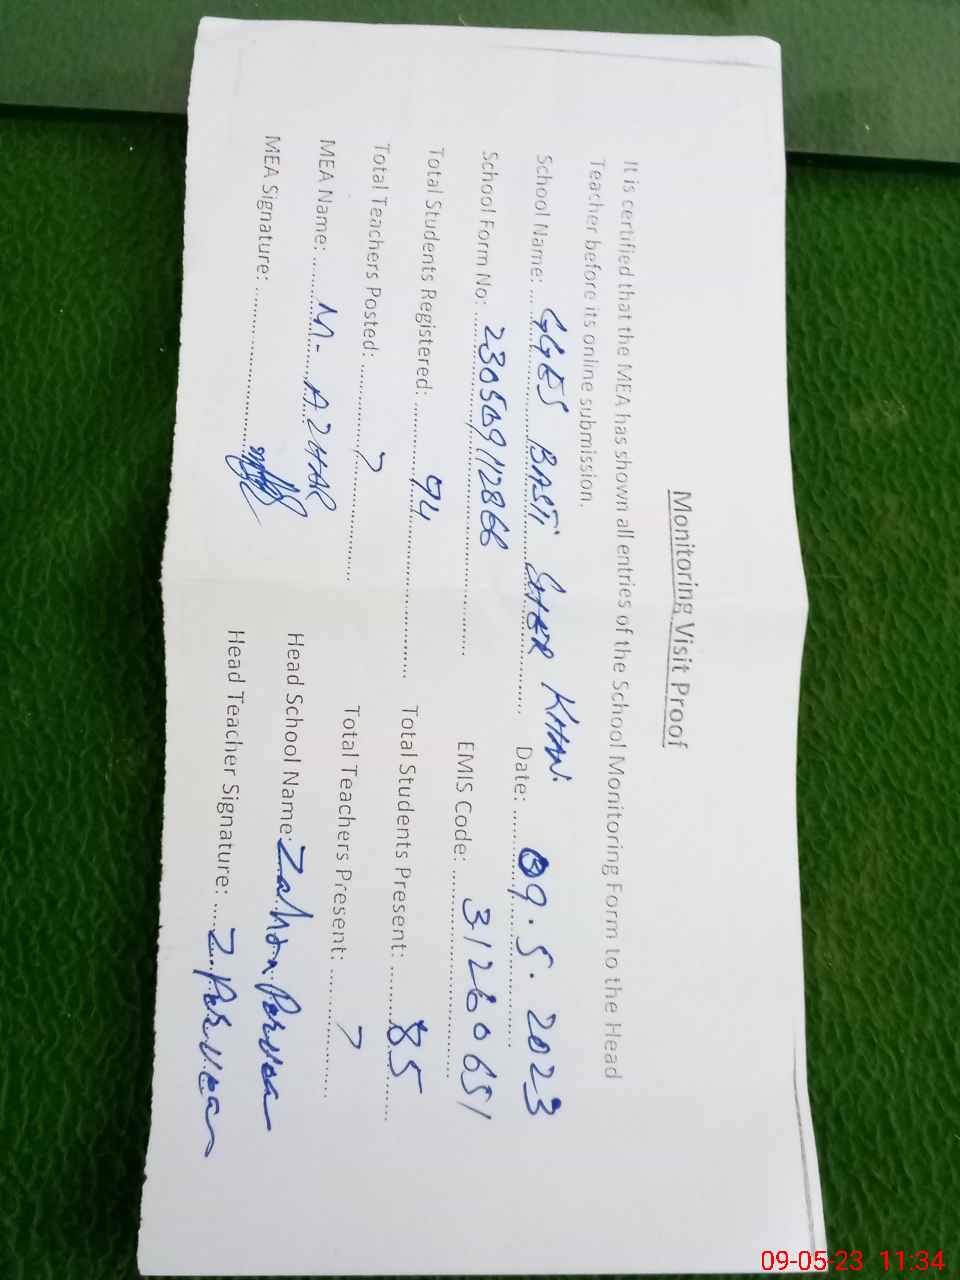 Monitoring Visit Proof
It is certified that the MEA has shown all entries of the School Monitoring Form to the Head
Teacher before its online submission.
School Name: GGES BASTI SHER KHAN. Date: 09.5.2023
School Form No: 230509112866 EMIS Code: 31260651
Total Students Registered: 94 Total Students Present: 85
Total Teachers Posted: 7 Total Teachers Present: 7
MEA Name: M- AZHAR Head School Name: Perveen
MEA Signature: Head Teacher Signature: Z. Perveen
09-05-23 11:34